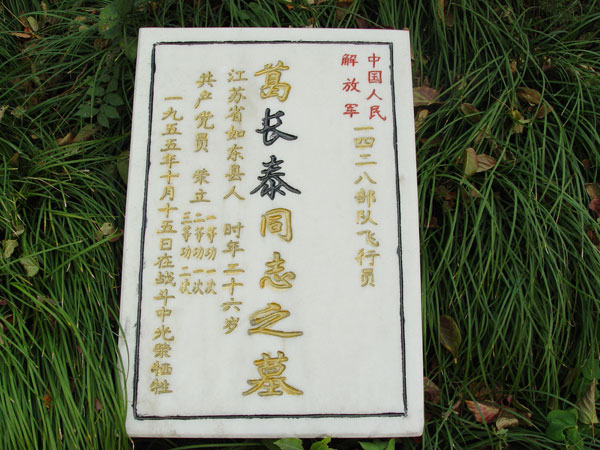 中国人民
解放军
一四二八部队飞行员
葛长泰同志之墓
江苏省如东县人 时年二十六岁
共产党员 荣立
一等功一次
二等功一次
三等功二次
一九五五年十月十五日在战斗中光荣牺牲